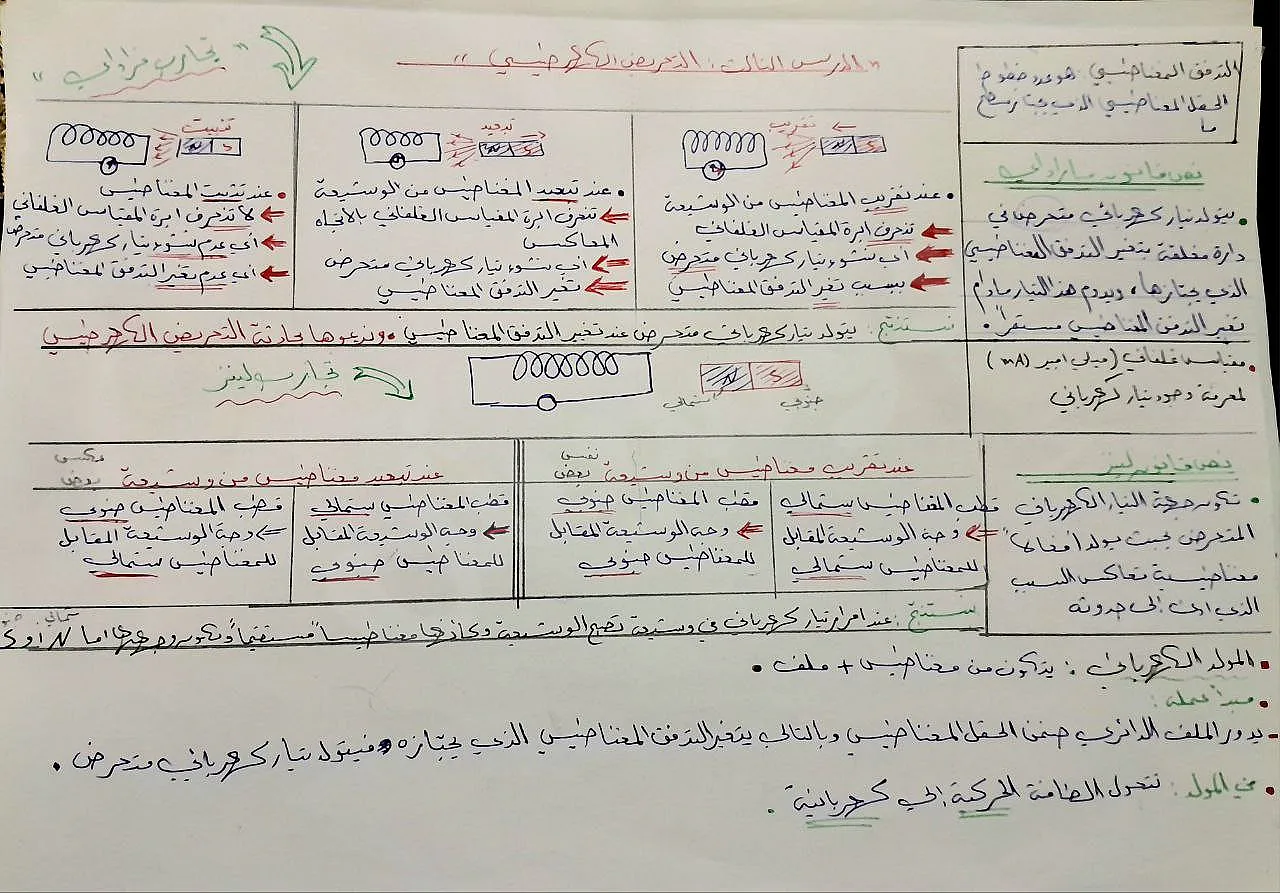 "الدرس الثالث: التحريض الكهرطيسي"
"تجارب فراداي"
التدفق المغناطيسي: هو عدد خطوط
الحقل المغناطيسي الذي يجتاز سطح
ما
نص قانون فاراداي
• يتولد تيار كهربائي متحرض في
دارة مغلقة بتغير التدفق المغناطيسي
الذي يجتازها، ويدوم هذا التيار مادام
تغير التدفق المغناطيسي مستمراً.
• مقياس غلفاني (ميلي امبير (mA)
لمعرفة وجود تيار كهربائي
تقريب
N S
• عند تقريب المغناطيس من الوشيعة
تنحرف ابرة المقياس الغلفاني
أي نشوء تيار كهربائي متحرض
بسبب تغير التدفق المغناطيسي
تبعيد
N S
• عند تبعيد المغناطيس من الوشيعة
تنحرف ابرة المقياس الغلفاني بالاتجاه
المعاكس
أي نشوء تيار كهربائي متحرض
تغير التدفق المغناطيسي
تثبيت
N S
• عند تثبيت المغناطيس
لا تنحرف ابرة المقياس الغلفاني
أي عدم نشوء تيار كهربائي متحرض
أي عدم تغير التدفق المغناطيسي
نستنتج: يتولد تيار كهربائي متحرض عند تغير التدفق المغناطيسي، وندعوها بحادثة التحريض الكهرطيسي
تجارب لينز
شمالي جنوبي
نص قانون لينز
• تكون جهة التيار الكهربائي
المتحرض بحيث يولد أفعالاً
مغناطيسية تعاكس السبب
الذي ادى الى حدوثه
عند تقريب مغناطيس من وشيعة نفس بعض
قطب المغناطيس شمالي
وجه الوشيعة المقابل
للمغناطيس شمالي
قطب المغناطيس جنوبي
وجه الوشيعة المقابل
للمغناطيس جنوبي
عند تبعيد مغناطيس من وشيعة عكس بعض
قطب المغناطيسي شمالي
وجه الوشيعة المقابل
للمغناطيس جنوبي
قطب المغناطيس جنوبي
وجه الوشيعة المقابل
للمغناطيس شمالي
نستنتج: عند امرار تيار كهربائي في وشيعة تصبح الوشيعة وكأنها مغناطيساً مستقيماً وتكون وجهيها اما N او S
شمالي
• المولد الكهربائي: يتكون من مغناطيس + ملف.
• مبدأ عمله:
- يدور الملف الدائري ضمن الحقل المغناطيسي وبالتالي يتغير التدفق المغناطيسي الذي يجتازه، فيتولد تيار كهربائي متحرض.
• في المولد: تتحول الطاقة الحركية إلى كهربائية.